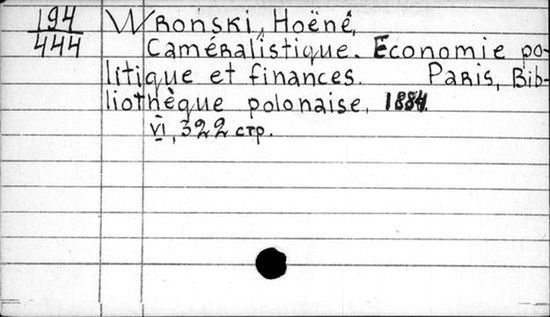 194 Wronski, Hoëné,
444 Caméralistique. Economie po-
litique et finances. Paris, Bib-
liothèque polonaise, 1884.
VI, 322 стр.